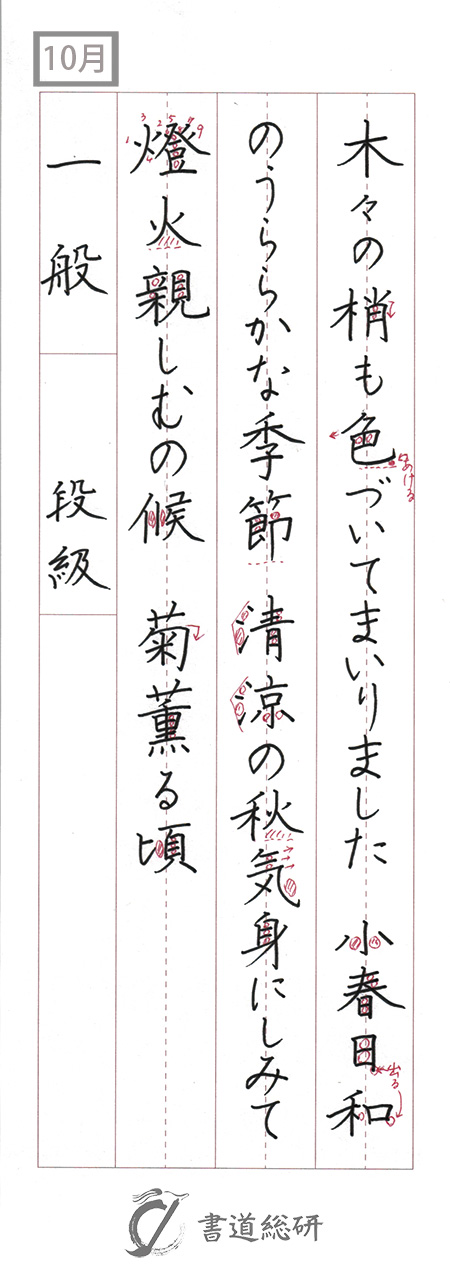 10月
木々の梢も色づいてまいりました 小春日和
のうららかな季節 清涼の秋気身にしみて
燈火親しむの候 菊薫る頃
一般 段級
はねける
出る
書道総研